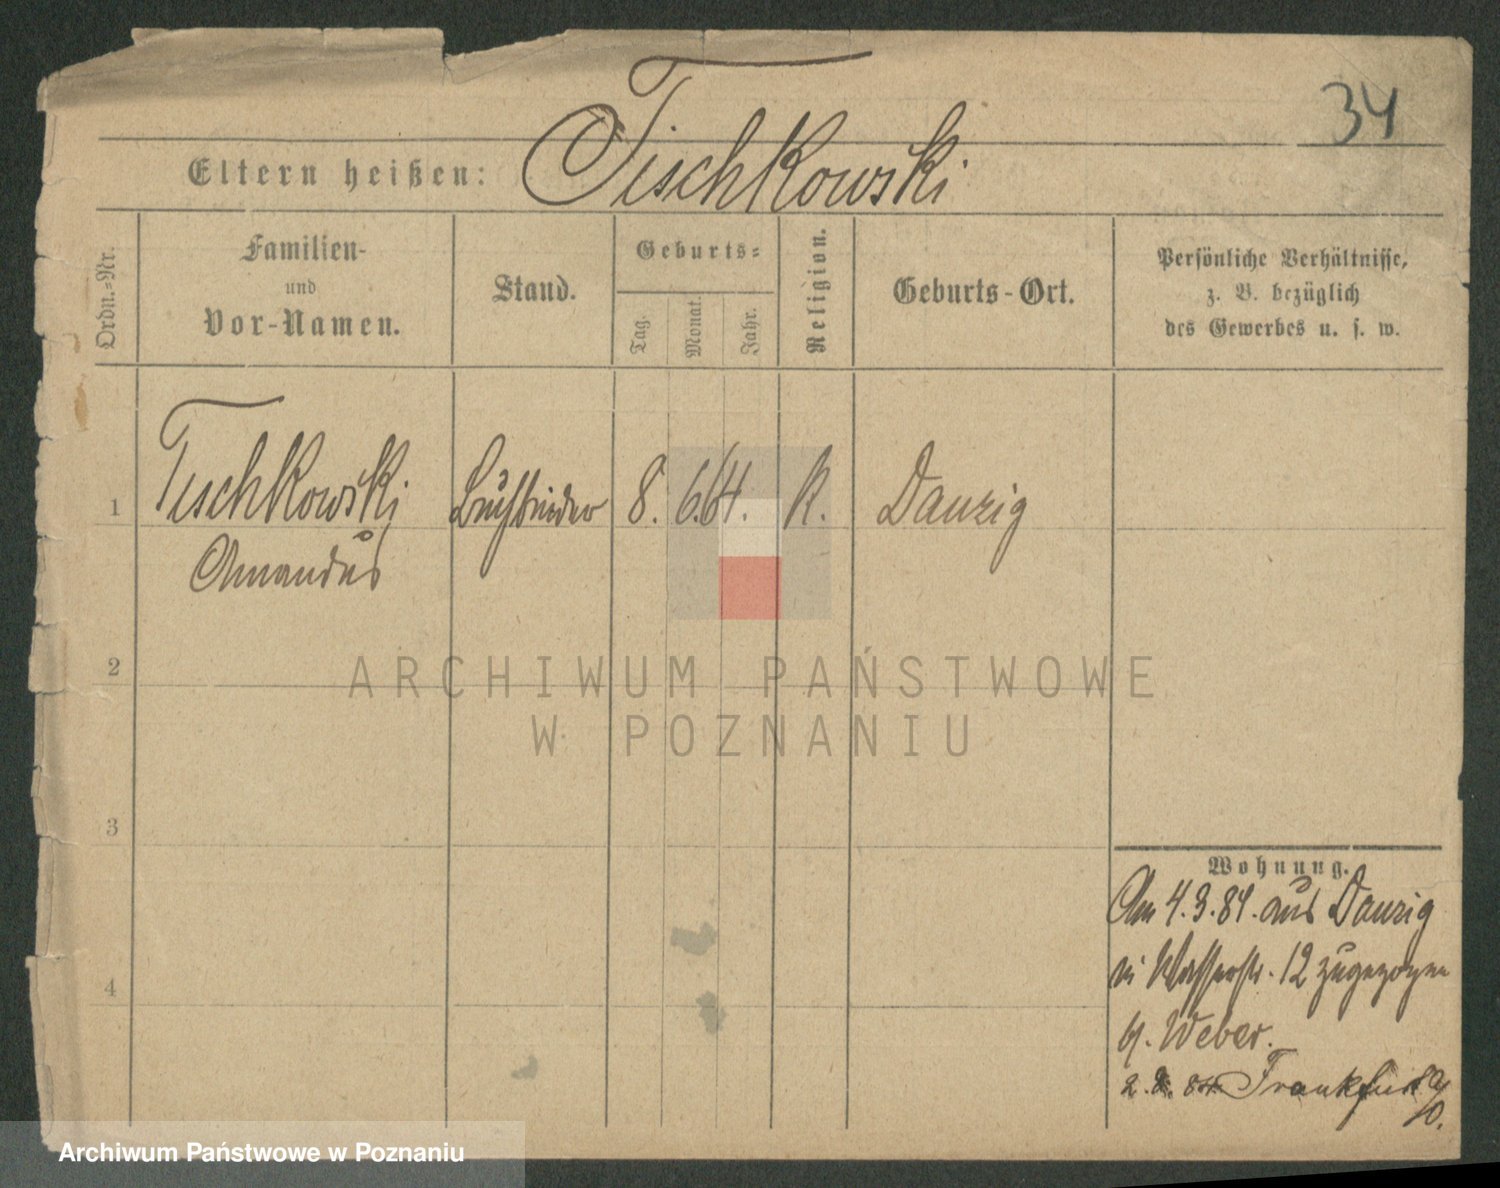 34
Eltern heißen: Tischkowski
Ordn.-Nr.
Familien-
und
Vor-Namen.
Stand.
Geburts-
Tag.
Monat.
Jahr.
Religion.
Geburts-Ort.
Persönliche Verhältnisse,
z. B. bezüglich
des Gewerbes u. s. w.
1 Tischkowski Buchbinder 8. 6. 64. K. Danzig
Amandus
2
ARCHIWUM PAŃSTWOWE
W POZNANIU
3
Wohnung.
Am 4.3.84. aus Danzig
in Wasserstr. 12 zugezogen
4
b. Weber.
2. 8. 84 Frankfurt a/
O.
Archiwum Państwowe w Poznaniu